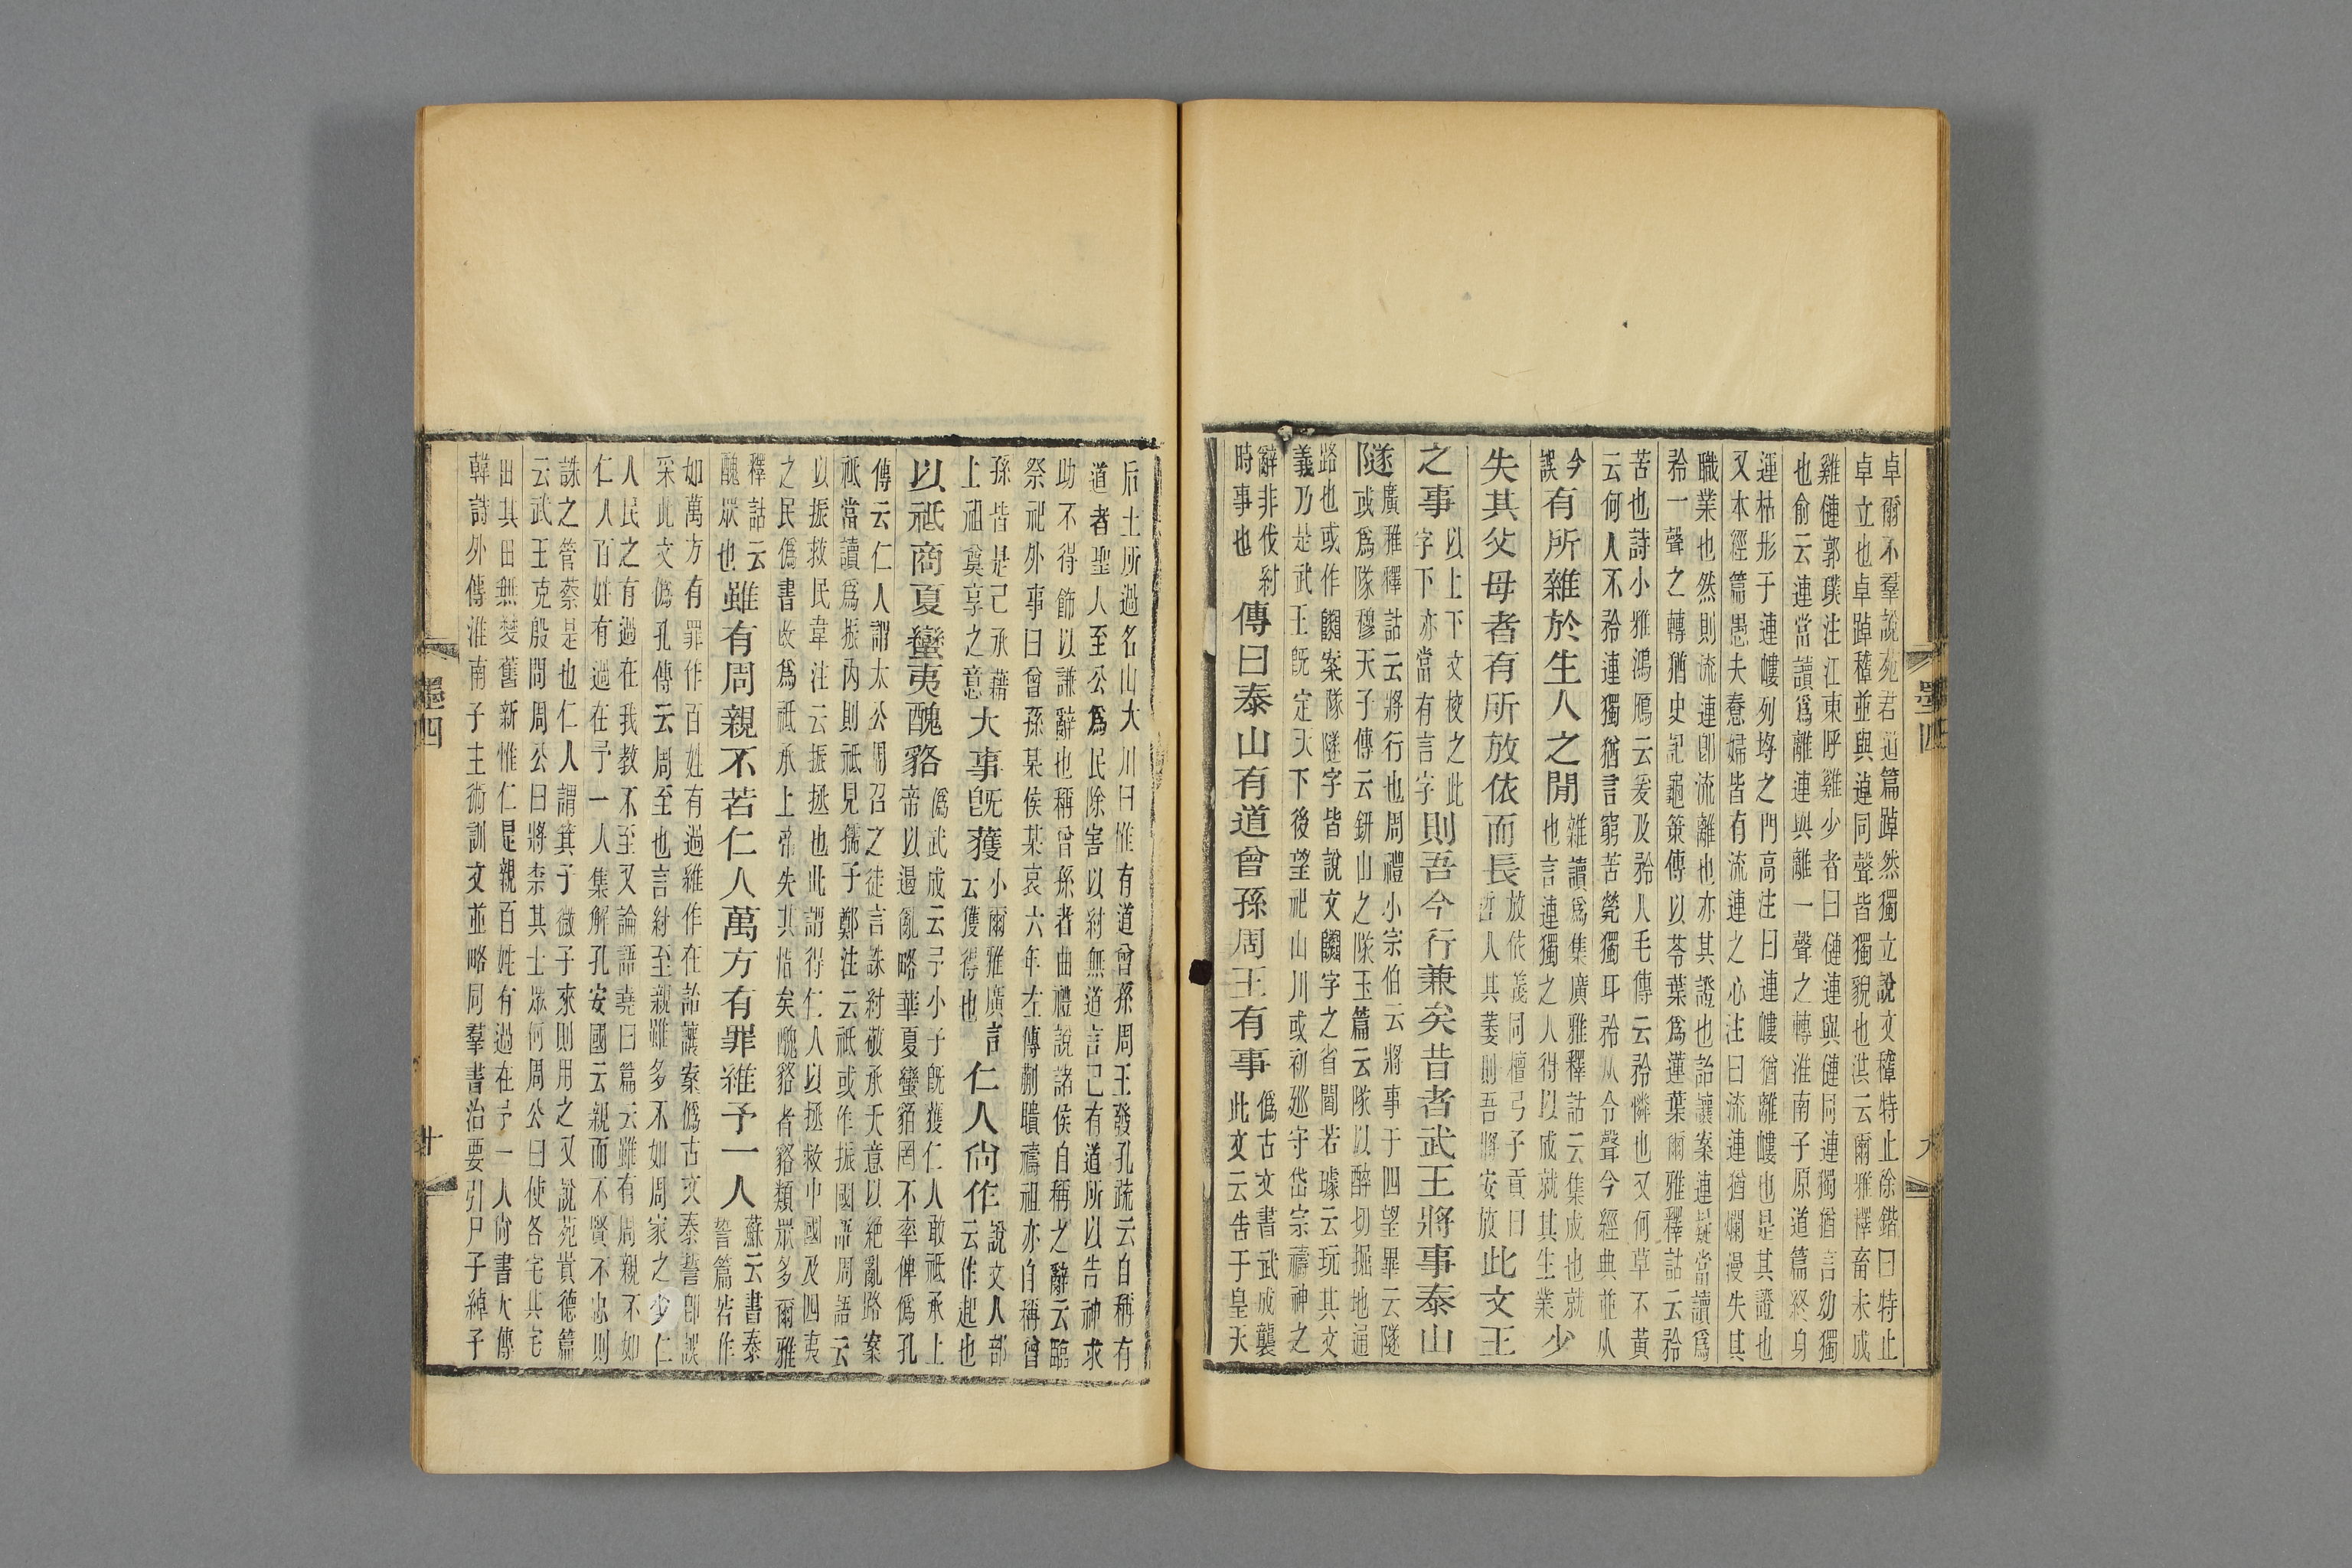 卓爾不羣說苑君道篇踔然獨立說文稽特止徐鍇曰特止
卓立也卓踔稽並與逴同聲皆獨貌也淇云爾雅釋畜未成
雞僆郭璞注江東呼雞少者曰僆連與僆同連獨猶言幼獨
也俞云連當讀爲離連與離一聲之轉淮南子原道篇終身
運枯形于連嶁列埓之門高注曰連嶁猶離嶁也是其證也
又本經篇愚夫惷婦皆有流連之心注曰流連猶爛漫失其
職業也然則流連卽流離也亦其證也詒讓案連疑當讀爲
矜一聲之轉猶史記龜策傳以苓葉爲蓮葉爾雅釋詁云矜
苦也詩小雅鴻鴈云爰及矜人毛傳云矜憐也又何草不黃
云何人不矜連獨猶言窮苦煢獨耳矜从令聲今經典並从
今誤有所雜於生人之閒雜讀爲集廣雅釋詁云集成也就也言連獨之人得以成就其生業少
失其父母者有所放依而長放依義同檀弓子貢曰哲人其萎則吾將安放此文王
之事以上下文校之此字下亦當有言字則吾今行兼矣昔者武王將事泰山
隧廣雅釋詁云將行也周禮小宗伯云將事于四望畢云隧或爲隊穆天子傳云鈃山之隊玉篇云隊以醉切掘地通
路也或作案隊隧字皆說文字之省閻若璩云玩其文
義乃是武王旣定天下後望祀山川或初巡守岱宗禱神之
辭非伐紂時事也傳曰泰山有道曾孫周王有事僞古文書武成襲此文云告于皇天
墨四
后土所過名山大川曰惟有道曾孫周王發孔疏云自稱有
道者聖人至公爲民除害以紂無道言己有道所以告神求
助不得飾以謙辭也稱曾孫者曲禮說諸侯自稱之辭云臨
祭祀外事曰曾孫某侯某哀六年左傳蒯聵禱祖亦自稱曾
孫皆是己承藉上祖奠享之意大事旣獲小爾雅廣言云獲得也仁人尙作說文人部云作起也
以祗商夏蠻夷醜貉僞武成云予小子旣獲仁人敢祗承上帝以遏亂略華夏蠻貊罔不率俾僞孔
傳云仁人謂太公周召之徒言誅紂敬承天意以絕亂路案
祗當讀爲振內則祗見孺子鄭注云祗或作振國語周語云
以振救民韋注云振拯也此謂得仁人以拯救中國及四夷
之民僞書改爲祗承上帝失其恉矣醜貉者貉類眾多爾雅
釋詁云醜眾也雖有周親不若仁人萬方有罪維予一人蘇云書泰誓篇若作
如萬方有罪作百姓有過維作在詒讓案僞古文泰誓卽誤
采此文僞孔傳云周至也言紂至親雖多不如周家之少仁
人民之有過在我教不至又論語堯曰篇云雖有周親不如
仁人百姓有過在予一人集解孔安國云親而不賢不忠則
誅之管蔡是也仁人謂箕子微子來則用之又說苑貴德篇
云武王克殷問周公曰將柰其士眾何周公曰使各宅其宅
田其田無變舊新惟仁是親百姓有過在予一人尙書大傳
韓詩外傳淮南子主術訓文並略同羣書治要引尸子綽子
墨四
廿